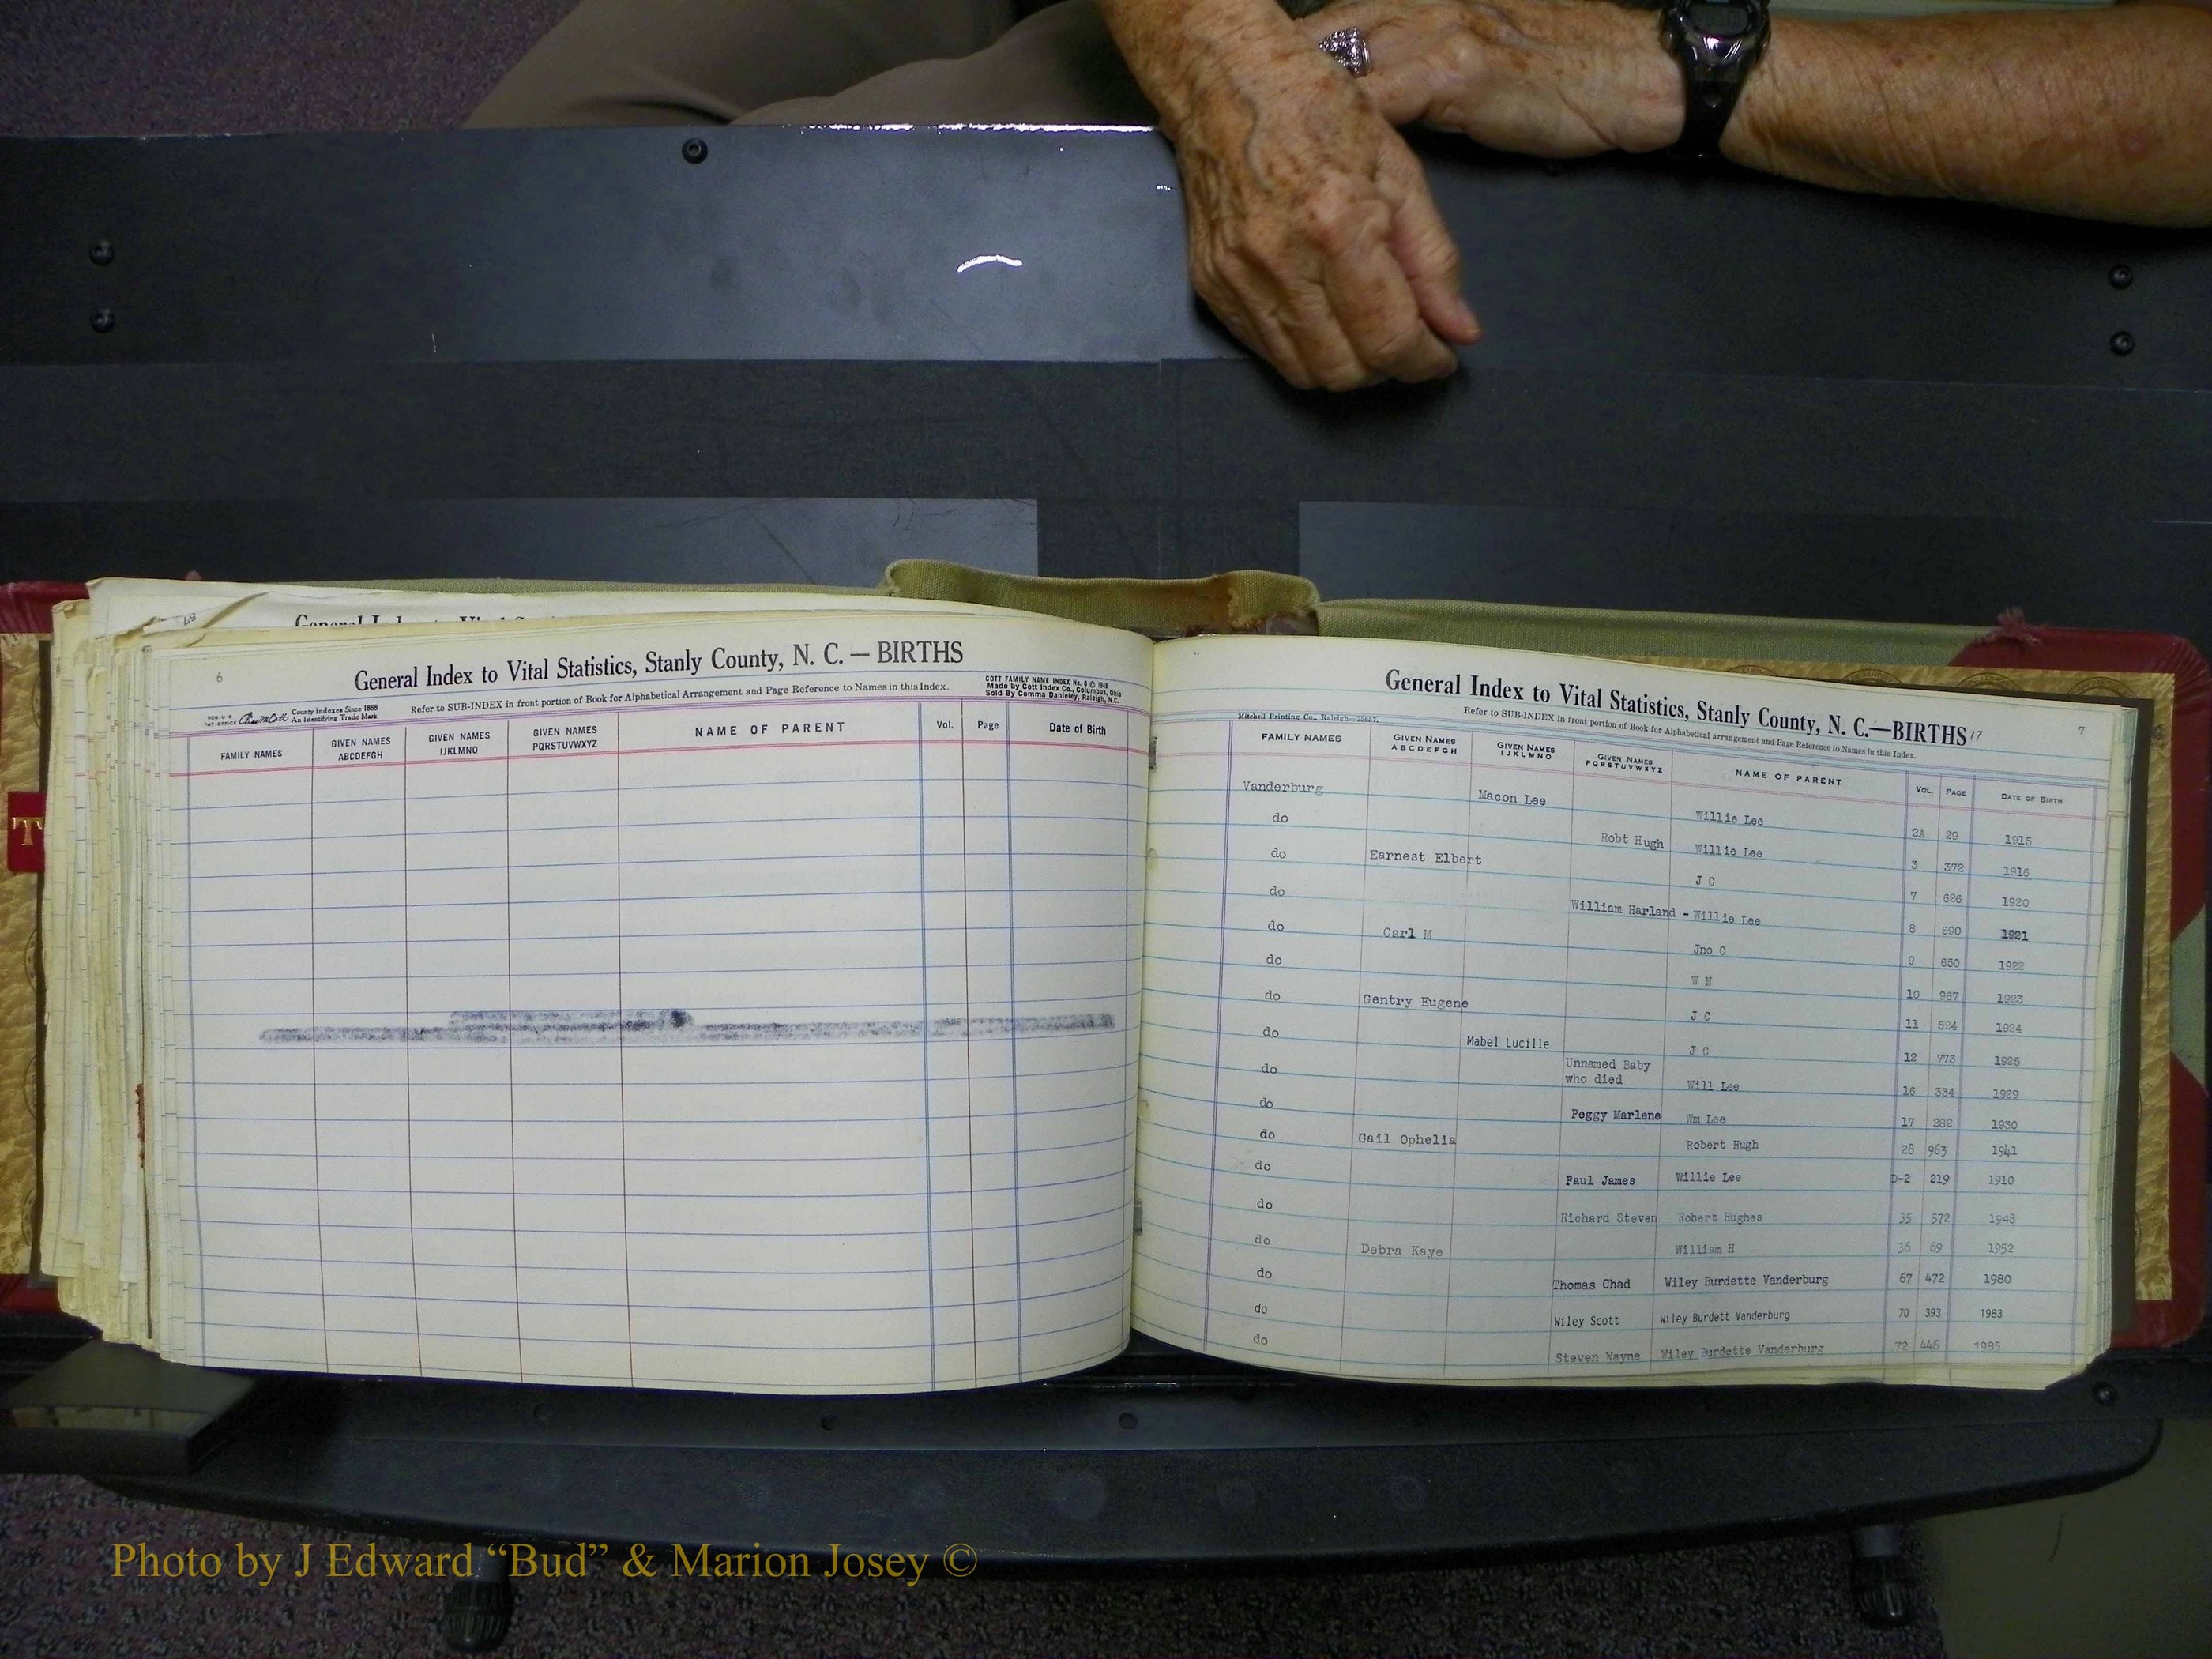 General Index to Vital Statistics, Stanly County, N. C. — BIRTHS
6
COTT FAMILY NAME INDEX No. 6 © 1948
Made by Cott Index Co., Columbus, Ohio
Sold By Comma Danieley, Raleigh, N.C.
County Indexes Since 1888
An Identifying Trade Mark
Refer to SUB-INDEX in front portion of Book for Alphabetical Arrangement and Page Reference to Names in this Index.
FAMILY NAMES GIVEN NAMES ABCDEFGH GIVEN NAMES IJKLMNO GIVEN NAMES PQRSTUVWXYZ NAME OF PARENT Vol. Page Date of Birth
General Index to Vital Statistics, Stanly County, N. C.—BIRTHS 17
7
Mitchell Printing Co., Raleigh
Refer to SUB-INDEX in front portion of Book for Alphabetical arrangement and Page Reference to Names in this Index.
FAMILY NAMES GIVEN NAMES ABCDEFGH GIVEN NAMES IJKLMNO GIVEN NAMES PQRSTUVWXYZ NAME OF PARENT VOL. PAGE DATE OF BIRTH
Vanderburg Macon Lee Willie Lee 2A 29 1915
do Robt Hugh Willie Lee 3 372 1916
do Earnest Elbert J C 7 626 1920
do William Harland - Willie Lee 8 690 1921
do Carl M Jno C 9 650 1922
do W N 10 967 1923
do Gentry Eugene J C 11 524 1924
do Mabel Lucille J C 12 773 1925
do Unnamed Baby who died Will Lee 16 334 1929
do Peggy Marlene Wm Lee 17 282 1930
do Gail Ophelia Robert Hugh 28 963 1941
do Paul James Willie Lee D-2 219 1910
do Richard Steven Robert Hughes 35 572 1948
do Debra Kaye William H 36 69 1952
do Thomas Chad Wiley Burdette Vanderburg 67 472 1980
do Wiley Scott Wiley Burdett Vanderburg 70 393 1983
do Steven Wayne Wiley Burdette Vanderburg 72 446 1985
T
Photo by J Edward “Bud” & Marion Josey ©